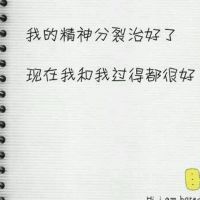 我的精神分裂治好了
现在我和我过得都很好